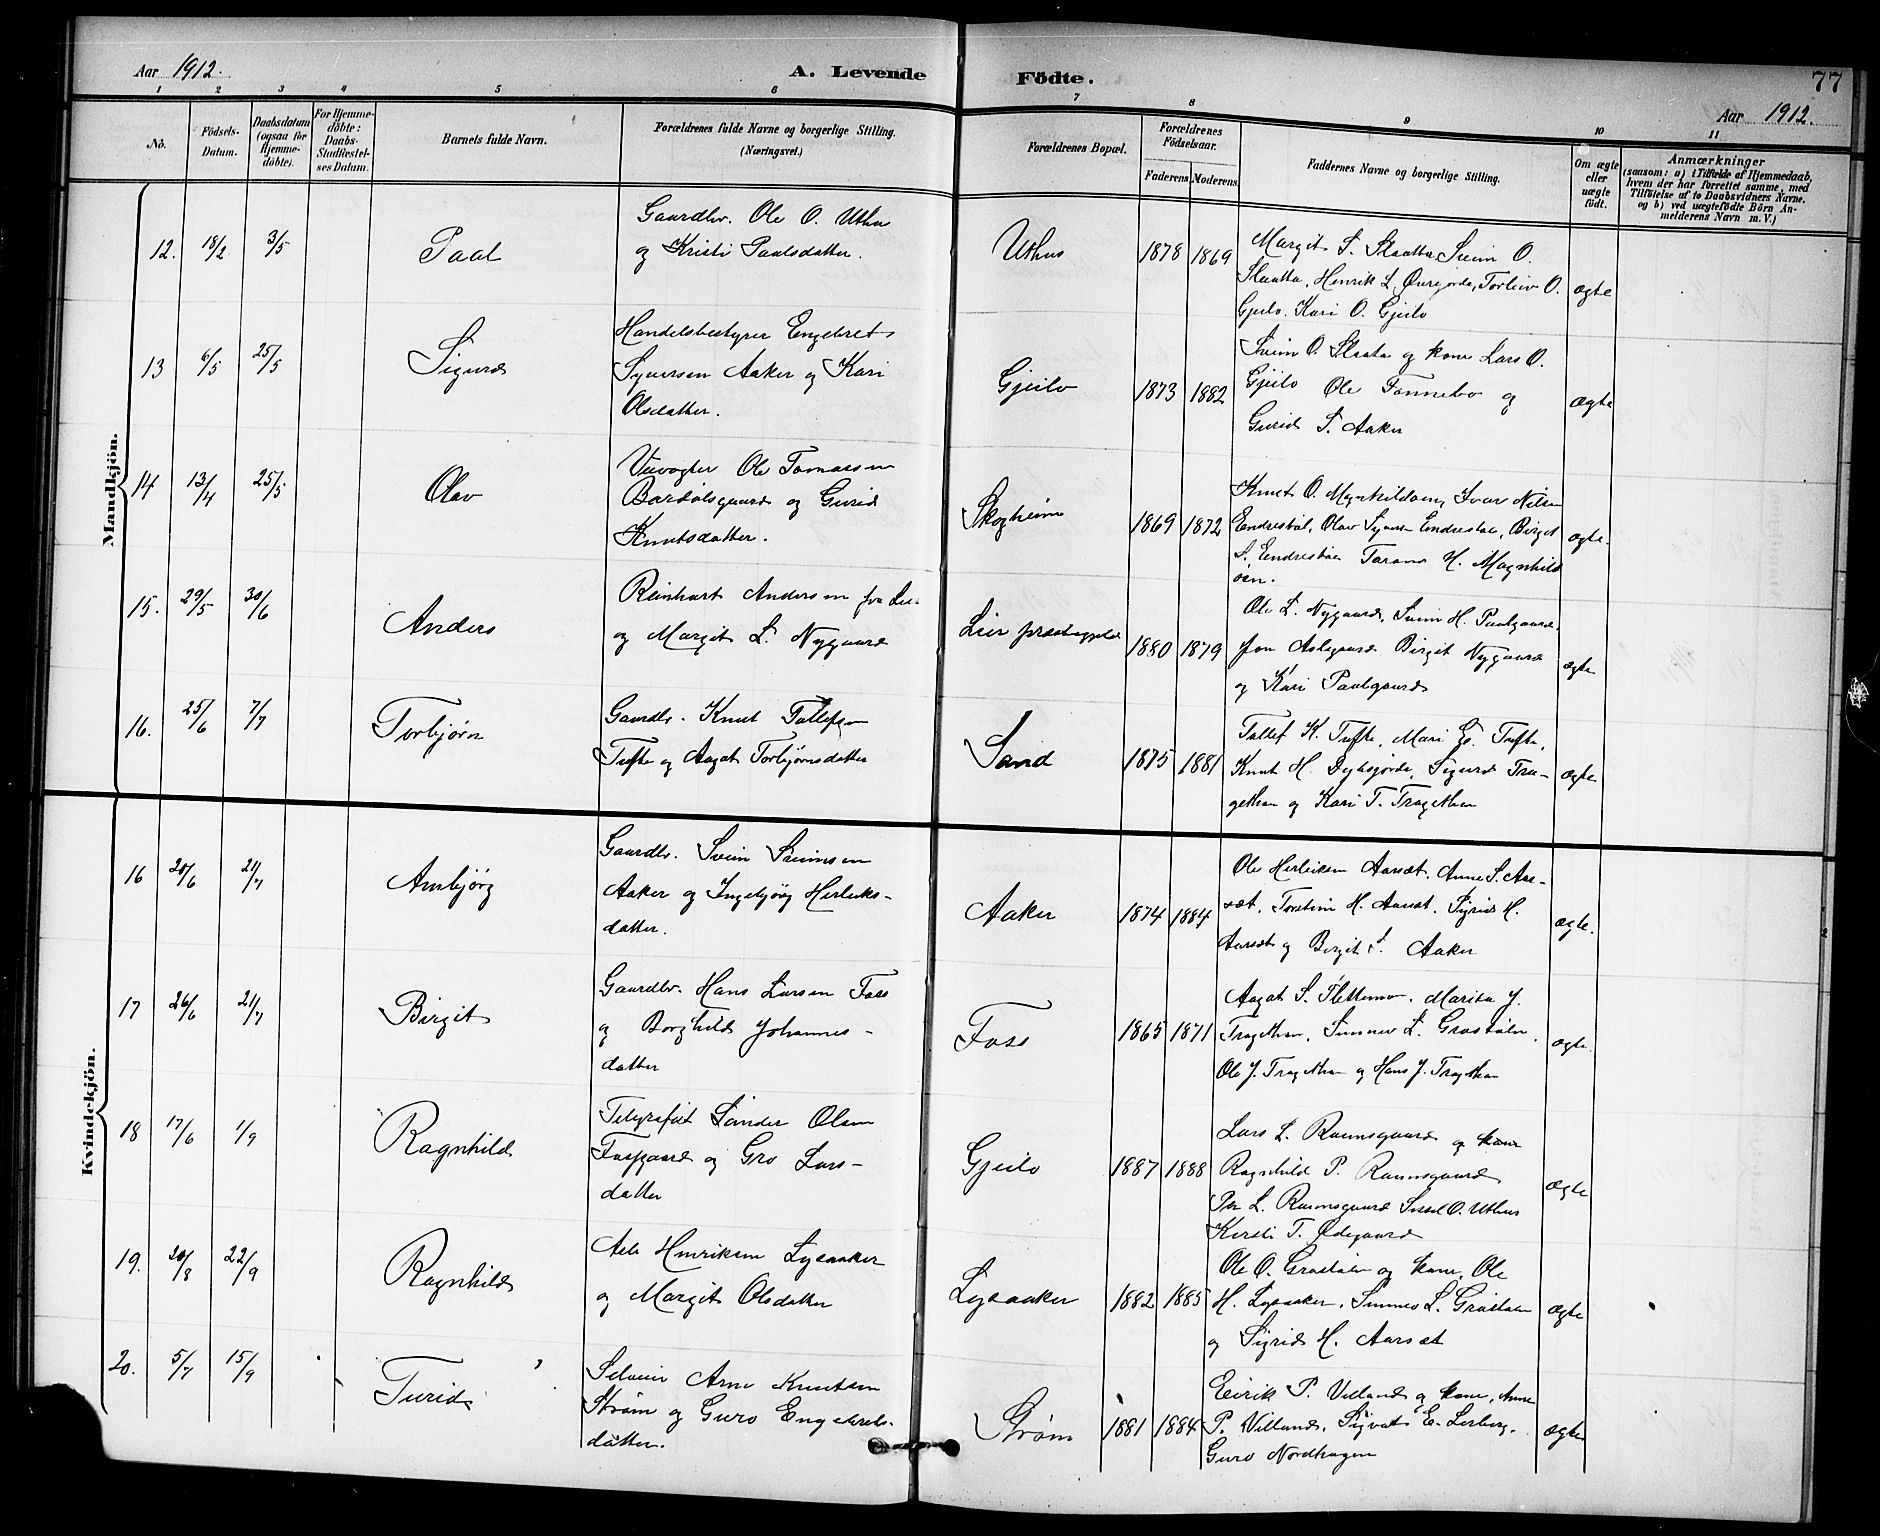 Aar 1912.
A. Levende Födte.
77
Aar 1912.
1 2 3 4 5 6 7 8 9 10 11
No.
Födsels-Datum.
Daabsdatum (ogsaa for Hjemmedöbte).
For Hjemmedöbte: Daabs-Stadfæstelses Datum.
Barnets fulde Navn.
Forældrenes fulde Navne og borgerlige Stilling. (Næringsvei.)
Forældrenes Bopæl.
Forældrenes Födselsaar.
Faderens Moderens
Faddernes Navne og borgerlige Stilling.
Om ægte eller uægte födt.
Anmærkninger
(saasom: a) i Tilfælde af Hjemmedaab,
hvem der har forrettet samme, med
Tilföielse af to Daabsvidners Navne.
og b) ved uægtefödte Börn An-
melderens Navn m. V.)
Mandkjön.
12. 18/2 3/5 Paal
Gaardbr. Ole O. Uthus
og Kristi Paalsdatter.
Uthus 1878 1869
Margit S. Slaatta, Svein O.
Slaatta, Henrik L. Øvregjorde, Torleiv O.
Gjeilo. Kari O. Gjeilo
ægte
13 6/5 25/5 Sigurd
Handelsbestyrer Engebret
Syversen Aaker og Kari
Olsdatter.
Gjeilo 1873 1882
Svein O. Slaata og kone Lars O.
Gjeilo Ole Tonnebo og
Gurid S. Aaker
ægte
14 13/4 25/5 Olav
Veivogter Ole Tomassen
Bardølsgaard og Gurid
Knutsdatter.
Skogheim 1869 1872
Knut O. Myrhildøen, Ivar Nilsen
Endrestøl, Olav Endrestøl, Birgit
S. Endrestøl H. Magnhild
øen.
ægte.
15. 29/5 30/6 Anders
Reinhart Andersen fra Lier
og Margit L. Nygaard
Lier præstegjeld 1880 1879
Ole L. Nygaard, Svein H. Paalgaard,
Jon Birgit Nygaard
og Kari Paalgaard
ægte
16. 25/6 7/7 Torbjørn
Gaardbr. Knut Tollefsen
Tufte og Aagot Torbjørnsdatter
Sand 1875 1881
Tollef K. Tufte, Mari Tufte,
Knut H. Sigurd Tra-
gethon og Kari T. Tragethon
ægte
Kvindekjön.
16 20/6 21/7 Arnbjørg
Gaardbr. Svein Sveinsen
Aaker og Ingebjørg Herleiks-
datter.
Aaker 1874 1884
Ole Herleiksen Aarsæt. Anne S. Aar-
sæt, Torstein H. Aarsæt. Sigrid H.
Aarsæt og Birgit S. Aaker
ægte.
17 26/6 21/7 Birgit
Gaardbr. Hans Larsen Foss
og Borghild Johannes-
datter
Foss 1865 1871
Aagot S. Slettemo. Marita J.
Tragethon, Sunnev L. Grøstølen,
Ole J. Tragethon og Hans J. Tragethon
ægte.
18 17/6 1/9 Ragnhild
Telegrafist Sander Olsen
Fossgaard og Gro Lars-
datter
Gjeilo 1887 1888
Lars L. Raunsgaard og kone
Ragnhild P. Raunsgaard
Per L. Raunsgaard Sissel O. Uthus
Kersti T. Ødegaard
ægte
19. 20/8 22/9 Ragnhild
Asle Henriksen Lysaaker
og Margit Olsdatter
Lysaaker 1882 1885
Ole O. Grøstølen og kone, Ole
H. Lysaaker, Sunnev L. Grøstølen
og Sigrid H. Aarsæt
ægte
20. 5/7 15/9 Turid
Selveier Arne Knutsen
Strøm og Guro Engebrets-
datter.
Strøm 1881 1884
Eirik P. Villand og kone, Anne
P. Villand, Sigvat E. Lerberg,
Guro Nordhagen
ægte